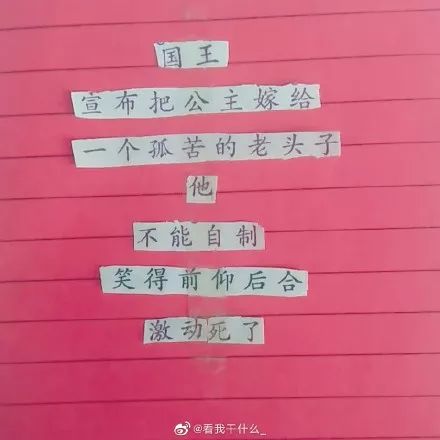 国王
宣布把公主嫁给
一个孤苦的老头子
他
不能自制
笑得前仰后合
激动死了
@看我干什么_